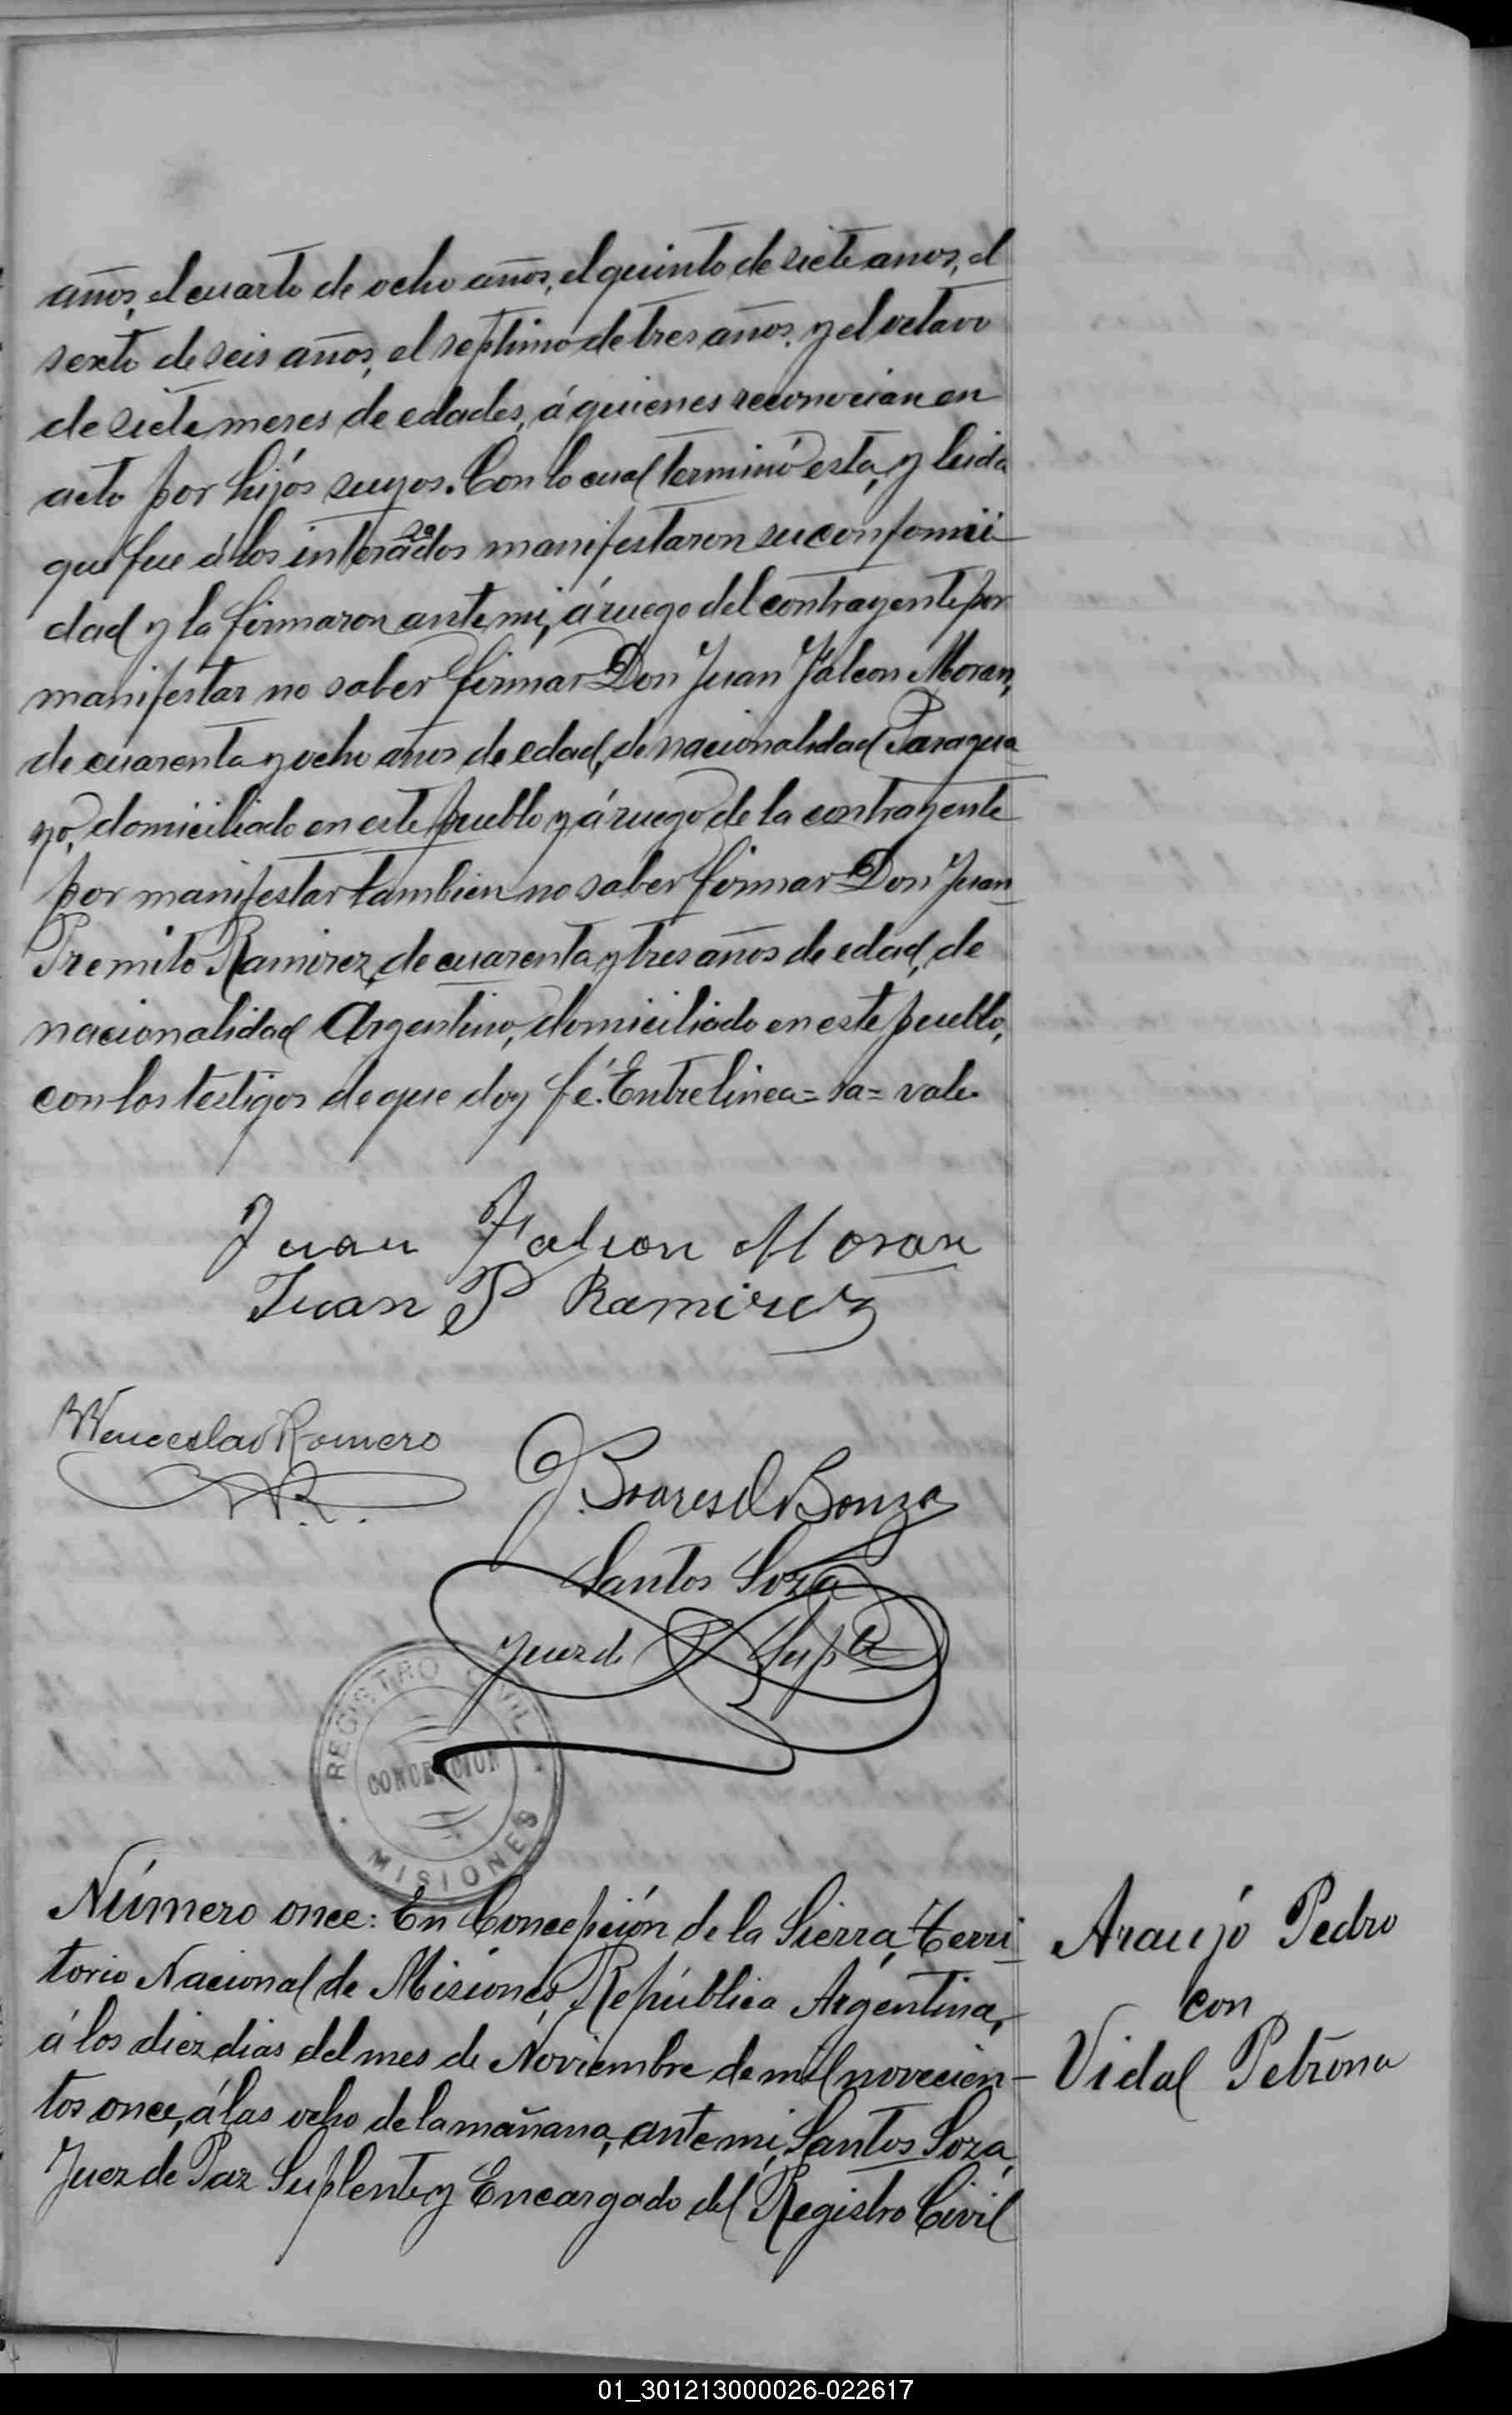 años, el cuarto de ocho años, el quinto de siete anos, el
sexto de seis años, el septimo de tres años, y el octavo
de siete meses de edades, á quienes reconocian en
acto por hijós suyos. Con lo cual terminó esta, y leida
que fue á los interados manifestaron su conformi-
sa
dad y la firmaron ante mi, á ruego del contrayente por
manifestar no saber firmar Don Juan Falcon Moran,
de cuarenta y ocho años de edad, de nacionalidad Paragua-
yo, domiciliado en este pueblo y á ruego de la contrayente
por manifestar tambien no saber firmar Don Juan
Premito Ramirez, de cuarenta y tres años de edad, de
nacionalidad Argentino, domiciliado en este pueblo,
con los testigos de que doy fé. Entrelinea = sa = vale.
Juan Falcon Moran
Juan P Ramirez
Wenceslao Romero
W.R.
Santos Soza
Juez de P Supte
REGISTRO CIVIL
CONCEPCION
MISIONES
Número once: En Concepción de la Sierra, Terri-
torio Nacional de Misiones, República Argentina,
á los diez dias del mes de Noviembre de mil novecien-
tos once, á las ocho de la mañana, ante mi, Santos Soza,
Juez de Paz Suplente y Encargado del Registro Civil
Araujó Pedro
con
Vidal Petrona
01_301213000026-022617